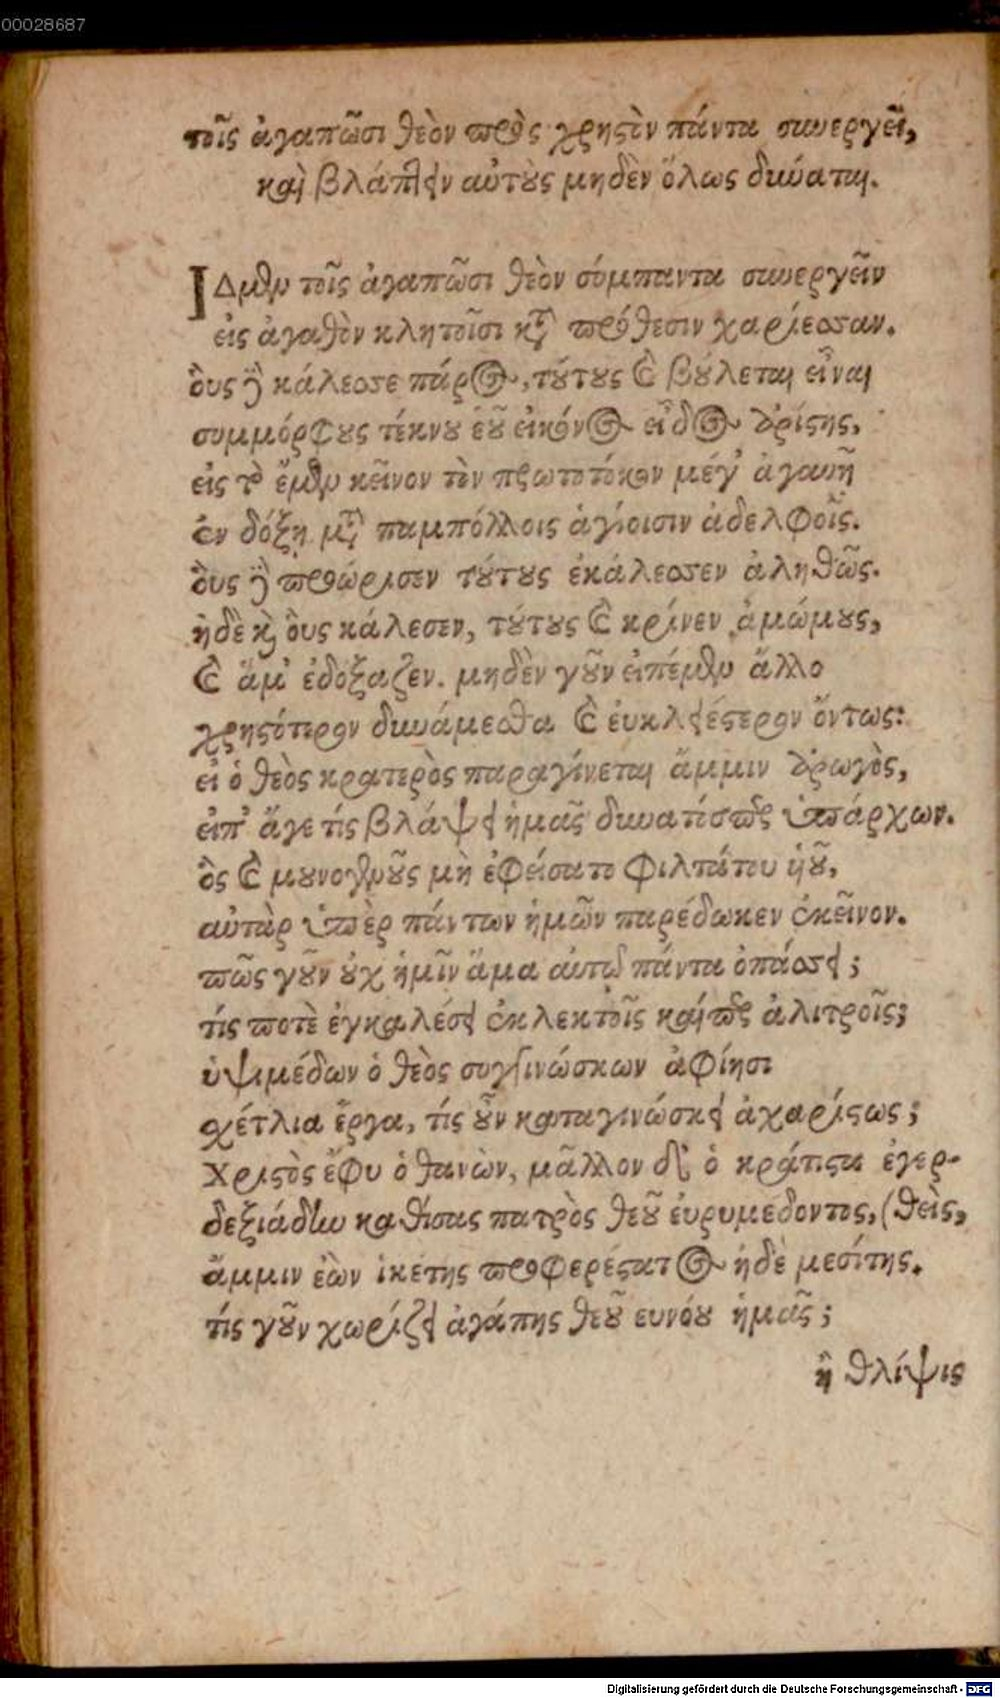 00028687
τοῖς ἀγαπῶσι θεὸν πρὸς χρηστὸν πάντα συνεργεῖ,
καὶ βλάπτειν αὐτοὺς μηδὲν ὅλως δύναται.
ἼΔμεν τοῖς ἀγαπῶσι θεὸν σύμπαντα συνεργεῖν
εἰς ἀγαθὸν κλητοῖσι κατὰ πρόθεσιν χαρίεσσαν.
οὓς γὰρ κάλεσσε πάρος, τούτους καὶ βούλεται εἶναι
συμμόρφους τέκνου ἑοῦ εἰκόνος εἶδος ἀρίστης,
εἰς τὸ ἔμεν κεῖνον τὸν πρωτοτόκον μέγ' ἀγαυῇ
ἐν δόξῃ μετὰ παμπόλλοις ἁγίοισιν ἀδελφοῖς.
οὓς γὰρ προώρισεν τούτους ἐκάλεσσεν ἀληθῶς.
ἠδὲ καὶ οὓς κάλεσεν, τούτους καὶ κρίνεν ἀμώμους,
καὶ ἅμ' ἐδόξαζεν. μηδὲν γοῦν εἰπέμεν ἄλλο
χρηστότερον δυνάμεσθα καὶ εὐκλεέστερον ὄντως:
εἰ ὁ θεὸς κρατερὸς παραγίνεται ἄμμιν ἀρωγὸς,
εἰπ' ἄγε τίς βλάψει ἡμᾶς δυνατίστος ὑπάρχων.
ὃς καὶ μουνογενοῦς μὴ ἐφείσατο φιλτάτου ὑοῦ,
αὐτὰρ ὑπὲρ πάντων ἡμῶν παρέδωκεν ἐκεῖνον.
πῶς γοῦν οὐχ ἡμῖν ἅμα αὐτῷ πάντα ὀπάσσει;
τίς ποτὲ ἐγκαλέσει ἐκλεκτοῖς καίπερ ἀλιτροῖς;
ὑψιμέδων ὁ θεὸς συγγινώσκων ἀφίησι
σχέτλια ἔργα, τίς οὖν καταγινώσκει ἀχαρίστως;
Χριστὸς ἔφυ ὁ θανὼν, μᾶλλον δὲ ὁ κράτιστα ἐγερ-
δεξιάδην καθίσας πατρὸς θεοῦ εὐρυμέδοντος, (θεὶς,
ἄμμιν ἐὼν ἱκέτης προφερέστατος ἠδὲ μεσίτης.
τίς γοῦν χωρίζει ἀγάπης θεοῦ εὐνόου ἡμᾶς;
ἢ θλίψις
Digitalisierung gefördert durch die Deutsche Forschungsgemeinschaft - DFG